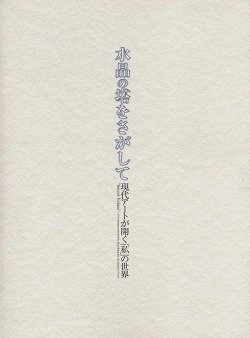 水晶の塔をさがして
現代アートが開く「私」の世界